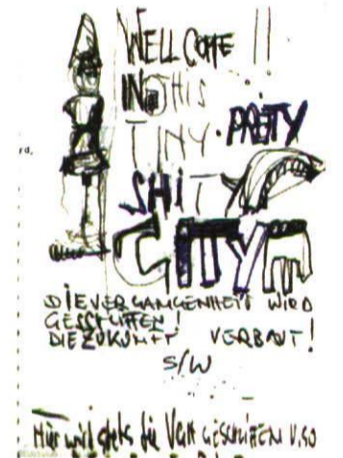 WELLCOME !!
IN THIS
TINY · PRETY
SHITY
CITY
DIE VERGANGENHEIT WIRD
GESCHLIFFEN!
DIE ZUKUNFT VERBAUT!
S/W
Hier wird stets die